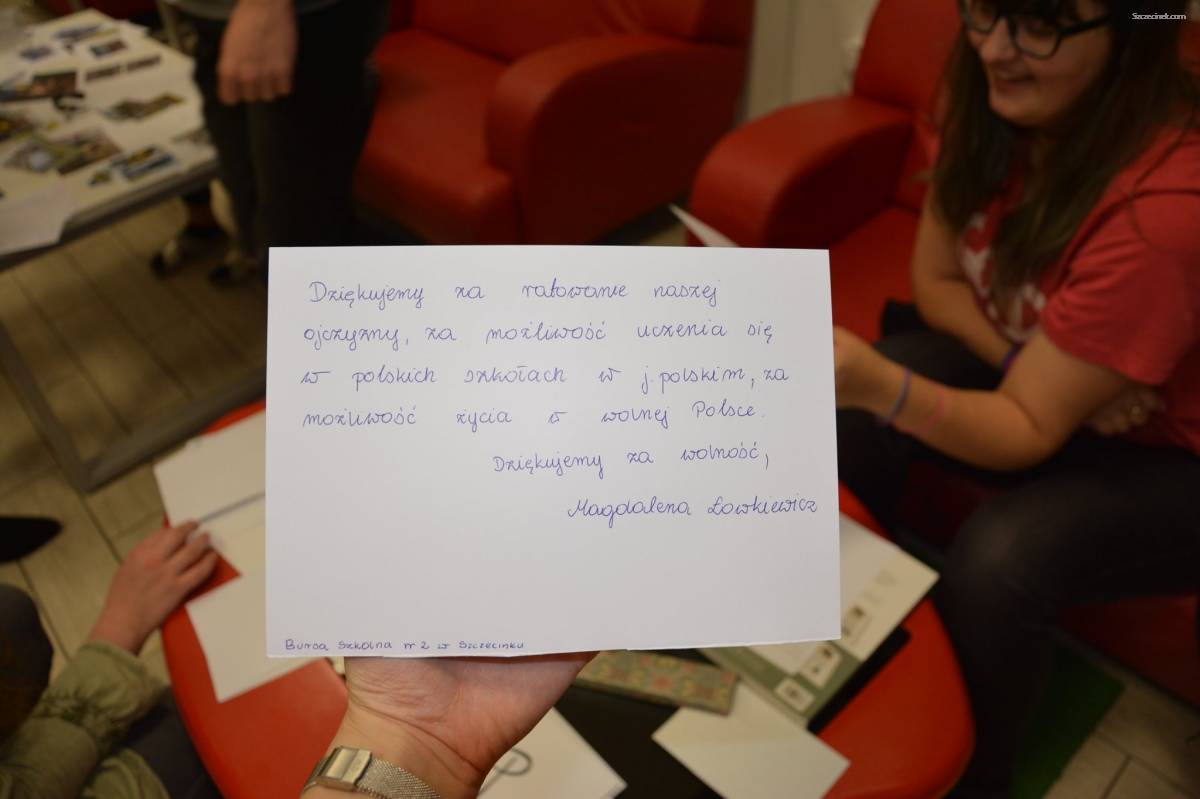 Szczecinek.com
Dziękujemy za ratowanie naszej
ojczyzny, za możliwość uczenia się
w polskich szkołach w j. polskim, za
możliwość życia w wolnej Polsce.
Dziękujemy za wolność,
Magdalena Łowkiewicz
Bursa Szkolna nr 2 w Szczecinku